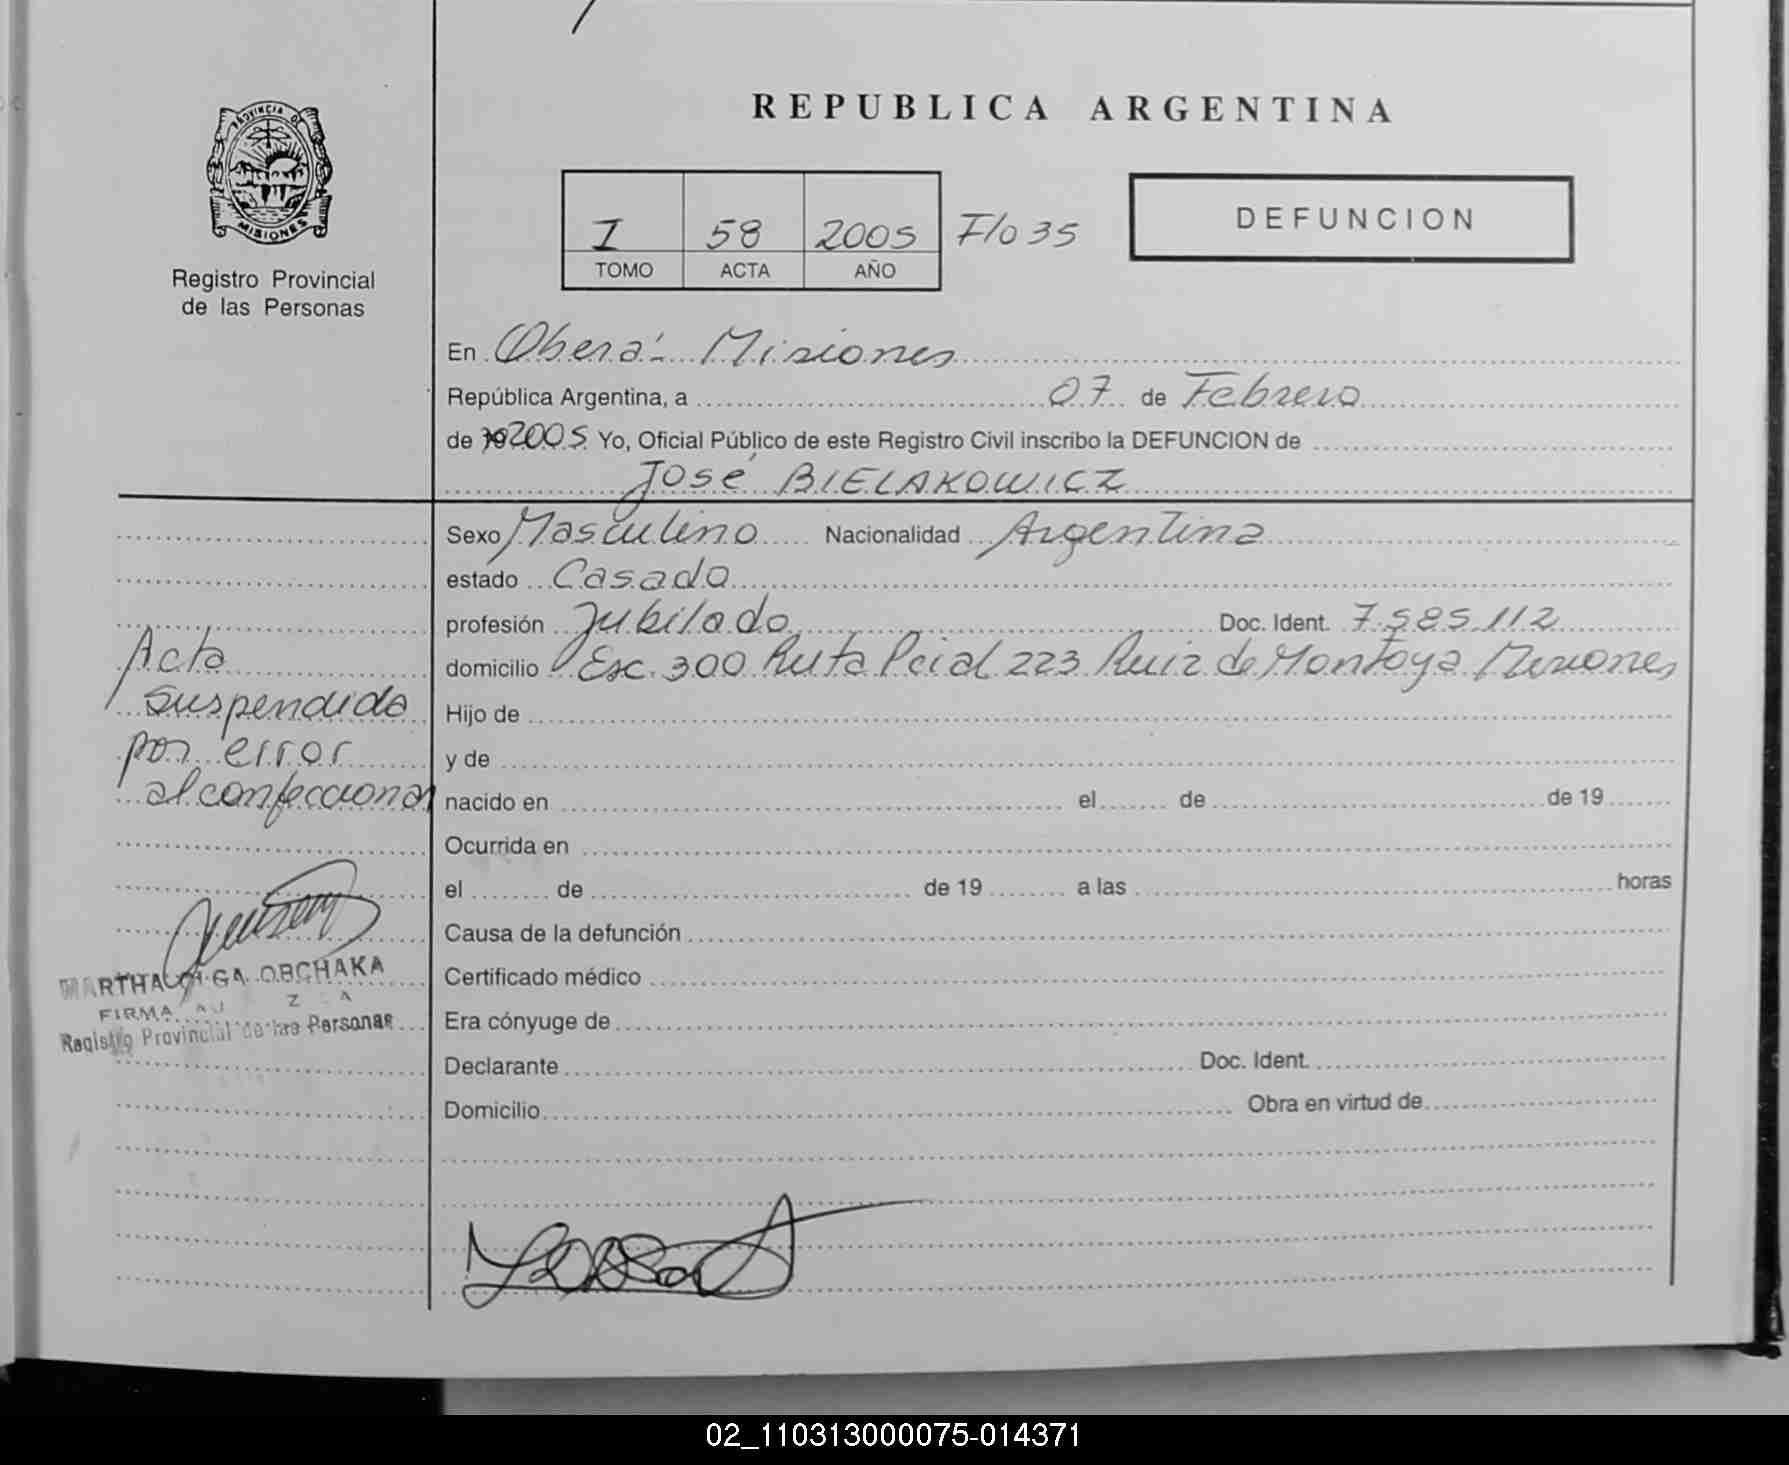 REPUBLICA ARGENTINA
PROVINCIA DE
MISIONES
Registro Provincial
de las Personas
I 58 2005 F/o 35
TOMO ACTA AÑO
DEFUNCION
En Oberá - Misiones
República Argentina, a 07 de Febrero
de 19 2005 Yo, Oficial Público de este Registro Civil inscribo la DEFUNCION de
José BIELAKOWICZ
Sexo Masculino Nacionalidad Argentina
estado Casado
profesión Jubilado Doc. Ident. 7.585.112
domicilio Esc. 300 Ruta Pcial 223 Ruiz de Montoya Misiones
Hijo de
y de
nacido en el de de 19
Ocurrida en
el de de 19 a las horas
Causa de la defunción
Certificado médico
Era cónyuge de
Declarante Doc. Ident.
Domicilio Obra en virtud de
Acta
suspendida
por error
al confeccionar
MARTHA OLGA OBCHAKA
FIRMA
Registro Provincial de las Personas
02_110313000075-014371